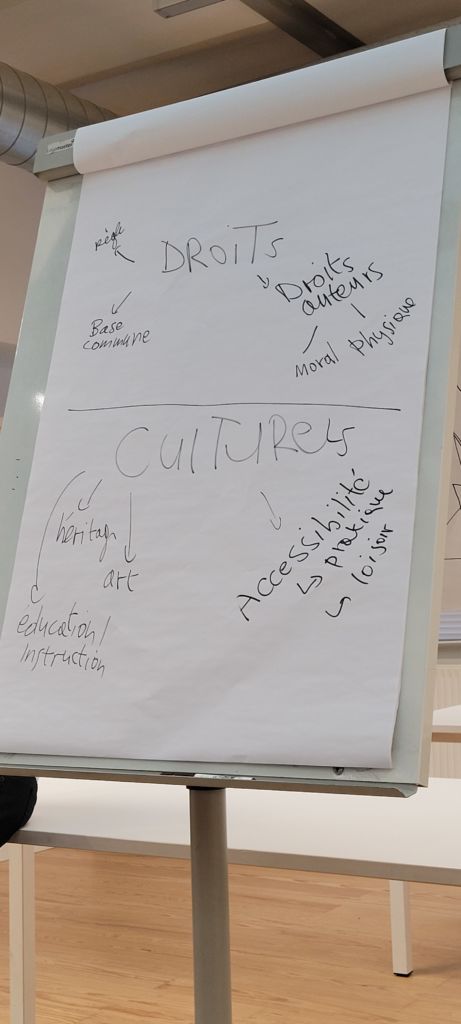 règle
DROITS
Droits
auteurs
Base
commune
Moral Physique
CULTURELS
héritage
art
Accessibilité
↳ pratique
↳ loisir
éducation/
Instruction